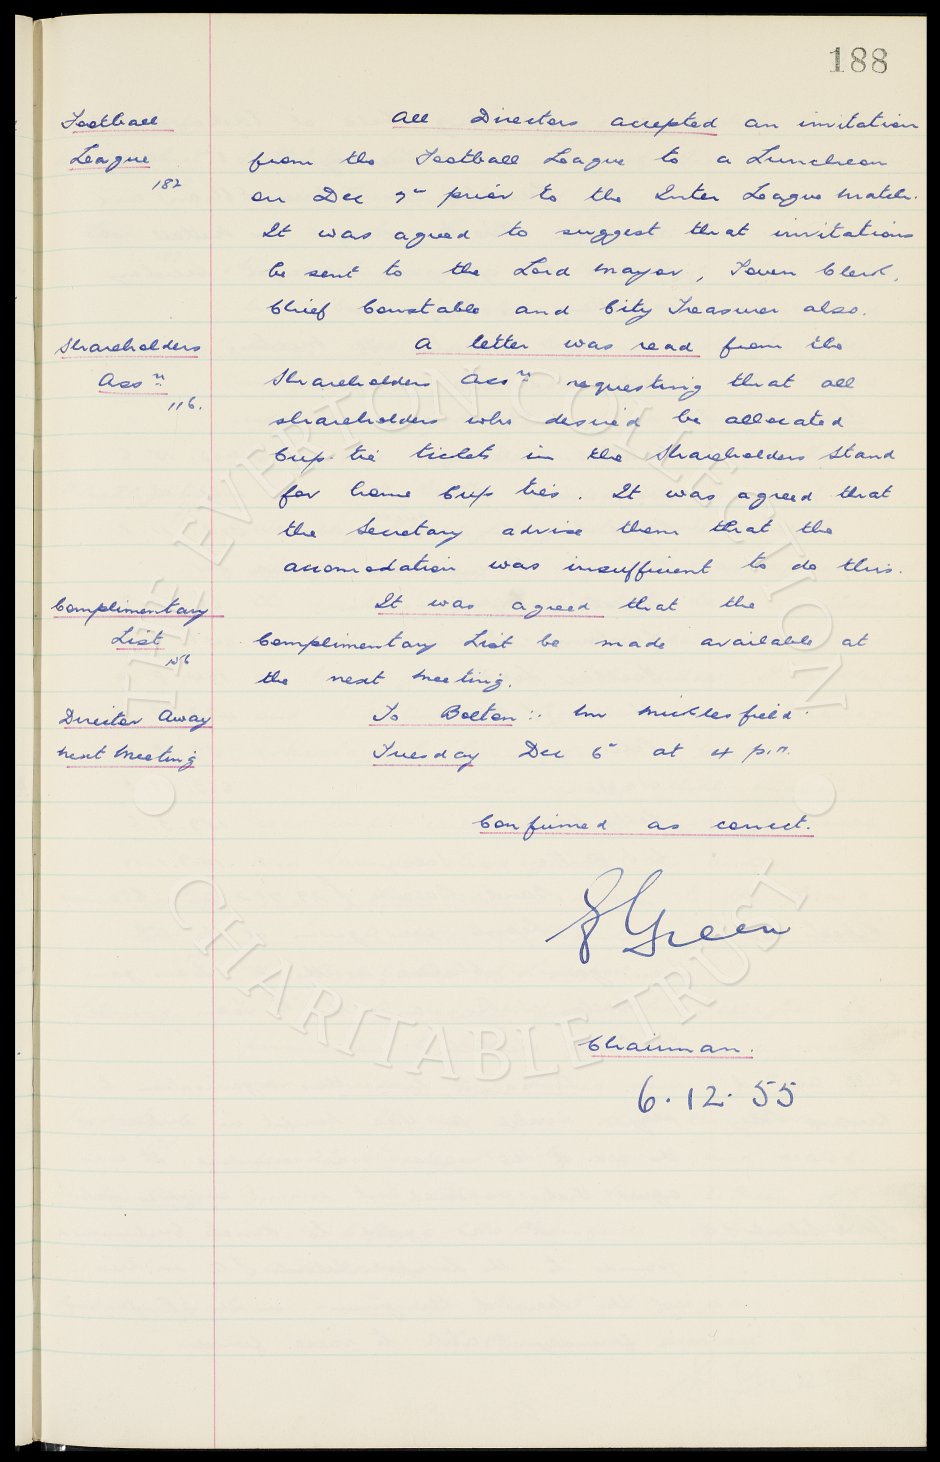 188
Football
League
182
All Directors accepted an invitation
from the Football League to a Luncheon
on Dec 7th prior to the Inter League Match.
It was agreed to suggest that invitations
be sent to the Lord Mayor, Town Clerk,
Chief Constable and City Treasurer also.
Shareholders
Assn
116.
A letter was read from the
Shareholders Assn requesting that all
shareholders who desired be allocated
Cup tie tickets in the Shareholders Stand
for home Cup ties. It was agreed that
the Secretary advise them that the
accomodation was insufficient to do this.
Complimentary
List
It was agreed that the
Complimentary List be made available at
the next meeting.
Director Away
To Bolton :- Mr Micklesfield.
Next Meeting
Tuesday Dec 6th at 4 p.m.
Confirmed as correct.
Green
Chairman.
6.12.55
THE EVERTON COLLECTION
CHARITABLE TRUST